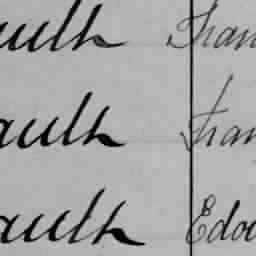 ault Fran
ault Fran
ault Edou